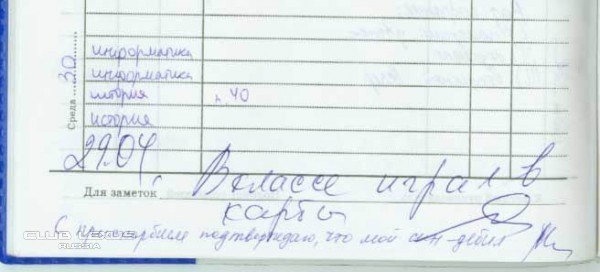 Среда 30
информатика
информатика
история п. 40
история
29.04.
Для заметок В классе играл в
карты
С прискорбием подтверждаю, что мой сын - дебил
CLUB LEXUS
RUSSIA